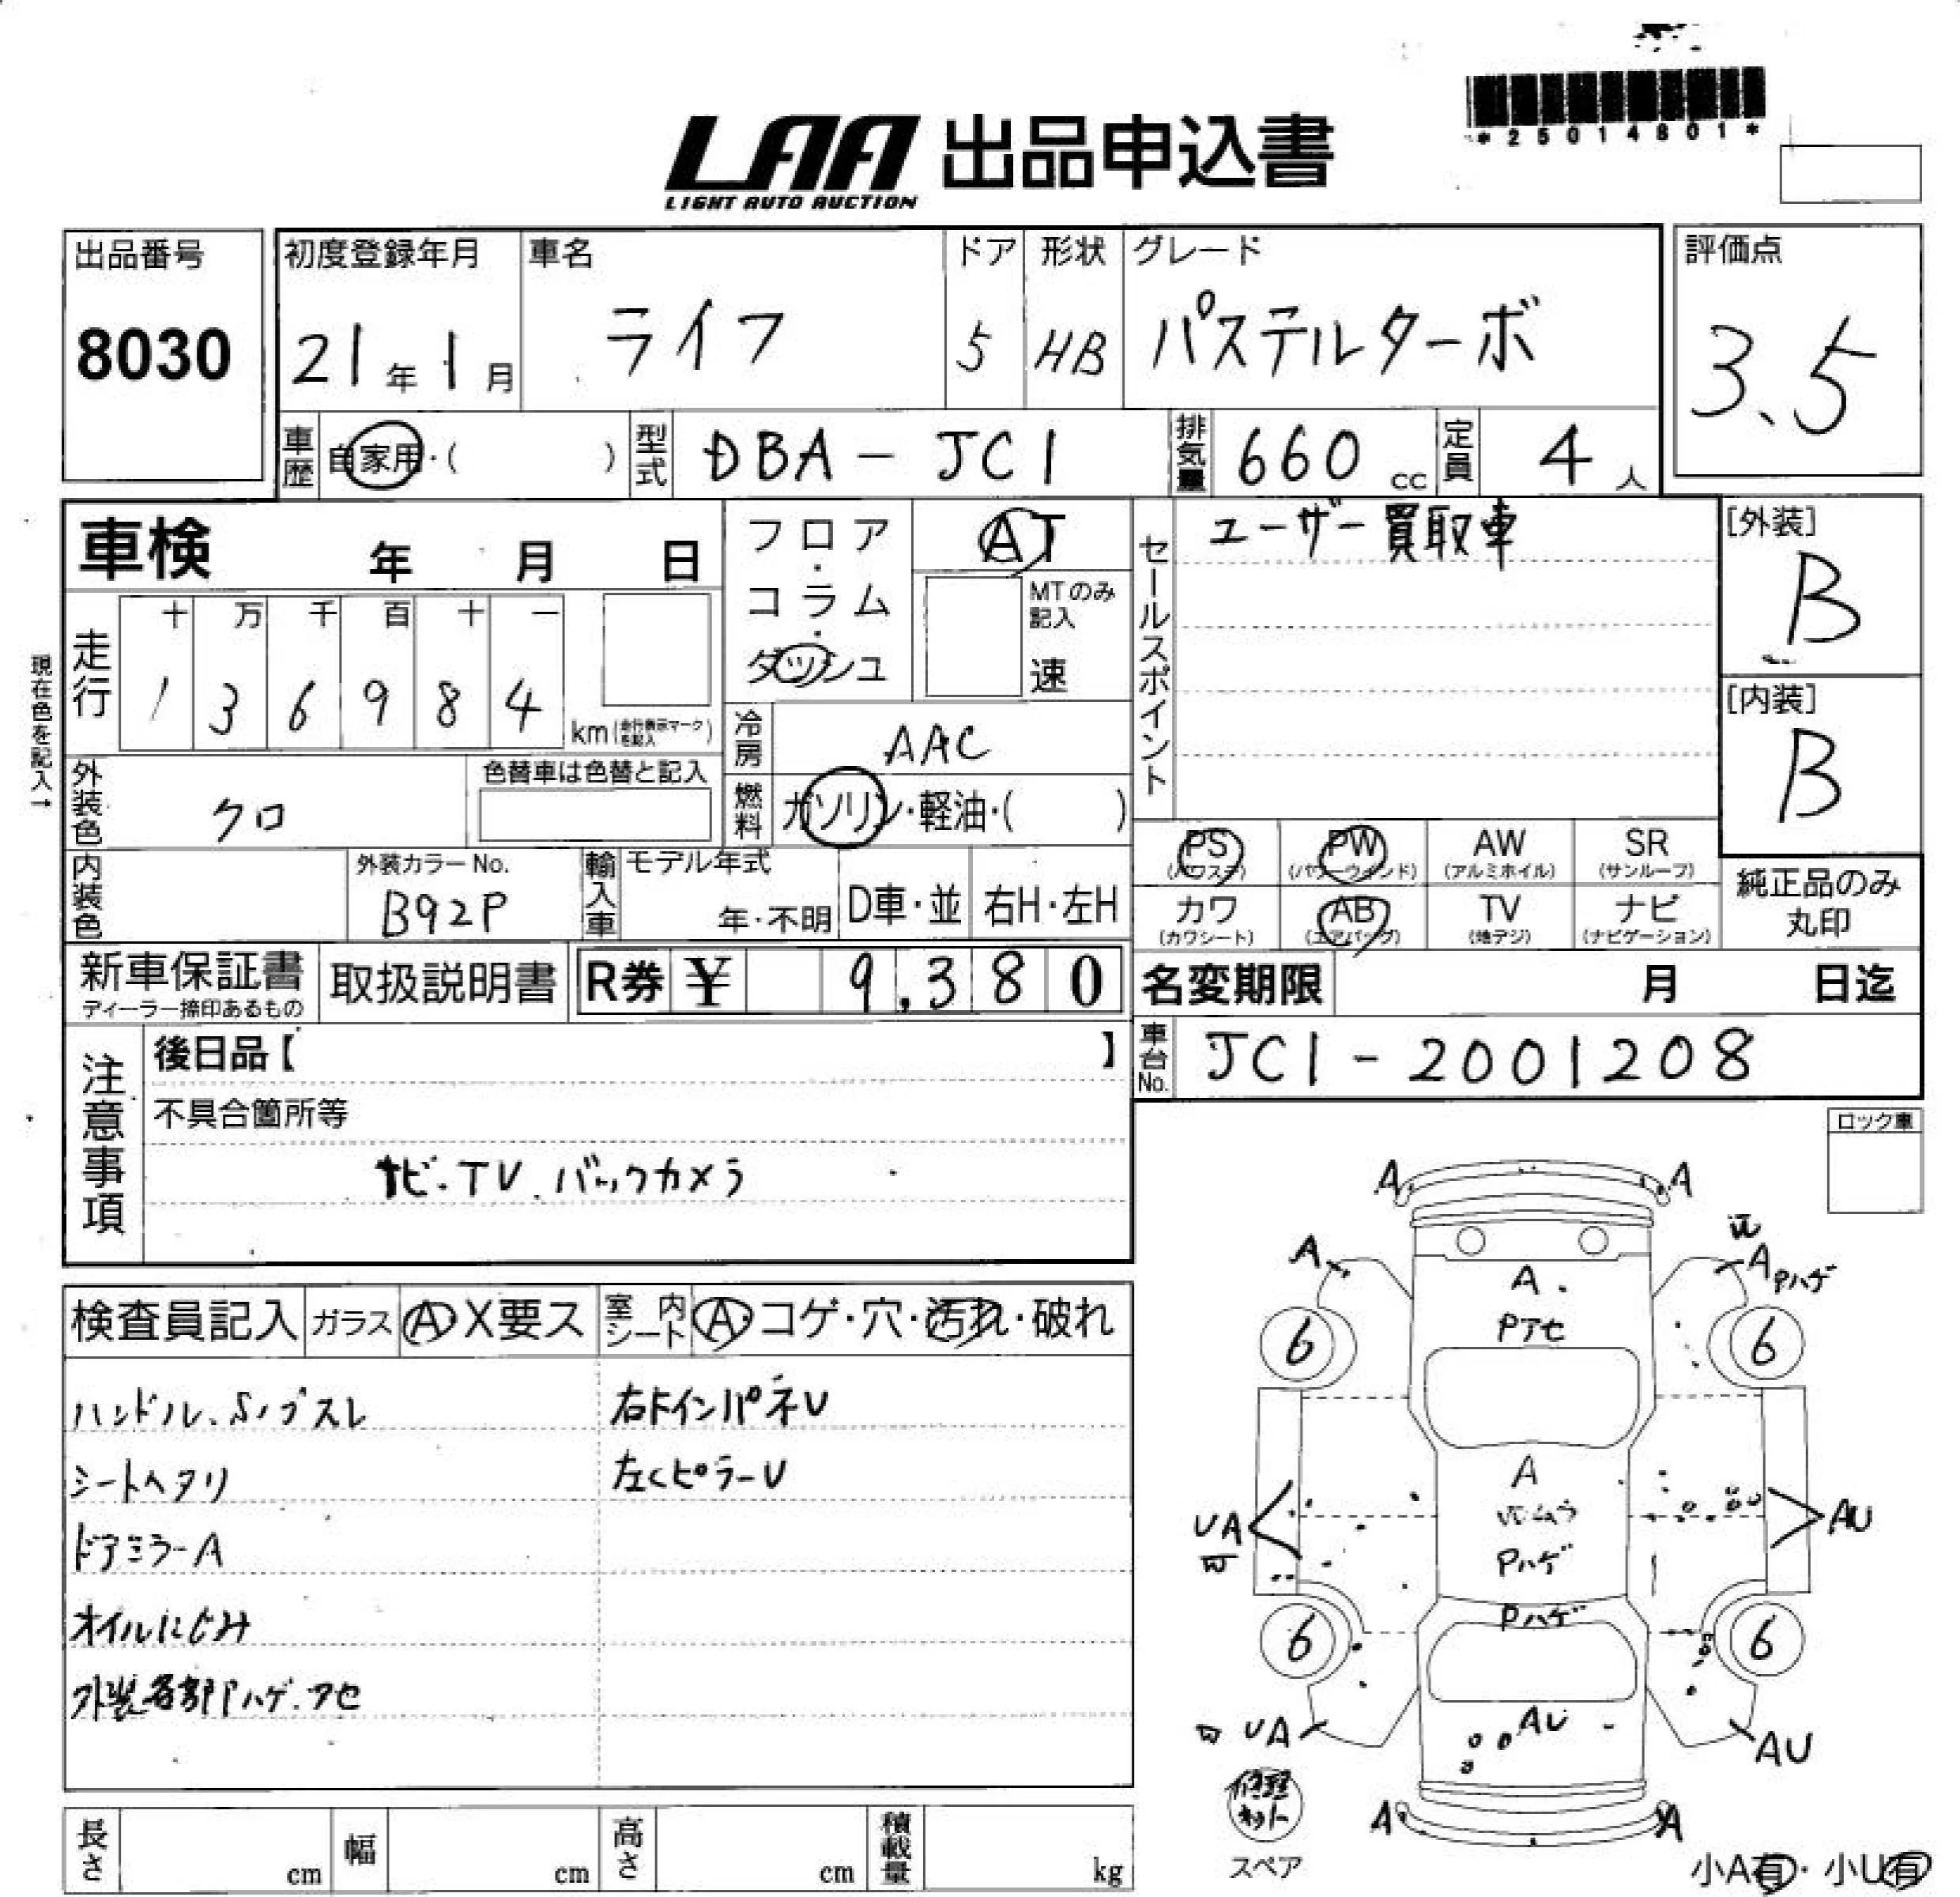 *25014801*
LAA 出品申込書
LIGHT AUTO AUCTION
出品番号
8030
初度登録年月
21年1月
車名
ライフ
ドア
5
形状
HB
グレード
パステルターボ
評価点
3.5
車歴
自家用・( )
型式
DBA-JC1
排気量
660 cc
定員
4人
車検 年 月 日
フロア・コラム・ダッシュ
AT
MTのみ記入
速
セールスポイント
ユーザー買取車
[外装]
B
[内装]
B
現在色を記入→
走行
十 万 千 百 十 一
1 3 6 9 8 4
km(走行表示マークを記入)
冷房
AAC
外装色
クロ
色替車は色替と記入
燃料
ガソリン・軽油・( )
内装色
外装カラーNo.
B92P
輸入車
モデル年式
年・不明
D車・並
右H・左H
PS
(パワステ)
PW
(パワーウインド)
AW
(アルミホイル)
SR
(サンルーフ)
カワ
(カワシート)
AB
(エアバッグ)
TV
(地デジ)
ナビ
(ナビゲーション)
純正品のみ
丸印
新車保証書
ディーラー捺印あるもの
取扱説明書
R券 ¥ 9,380
名変期限 月 日迄
車台No.
JC1-2001208
注意事項
後日品【 】
不具合箇所等
ナビ.TV.バックカメラ
ロック車
検査員記入
ガラス
A X要ス
室内シート
A・コゲ・穴・汚れ・破れ
ハンドル、Sノブスレ
右Fインパネ U
シートヘタリ
左Cピラー U
ドアミラーA
オイルにじみ
外装各部Pハゲ.アセ
A A
A
A Pハゲ
A
Pアセ
6 6
A
UA
AU
Pハゲ
Pハゲ
6 6
UA
AU
AU
修理キット
スペア
A A
小A有・小U有
長さ cm
幅 cm
高さ cm
積載量 kg